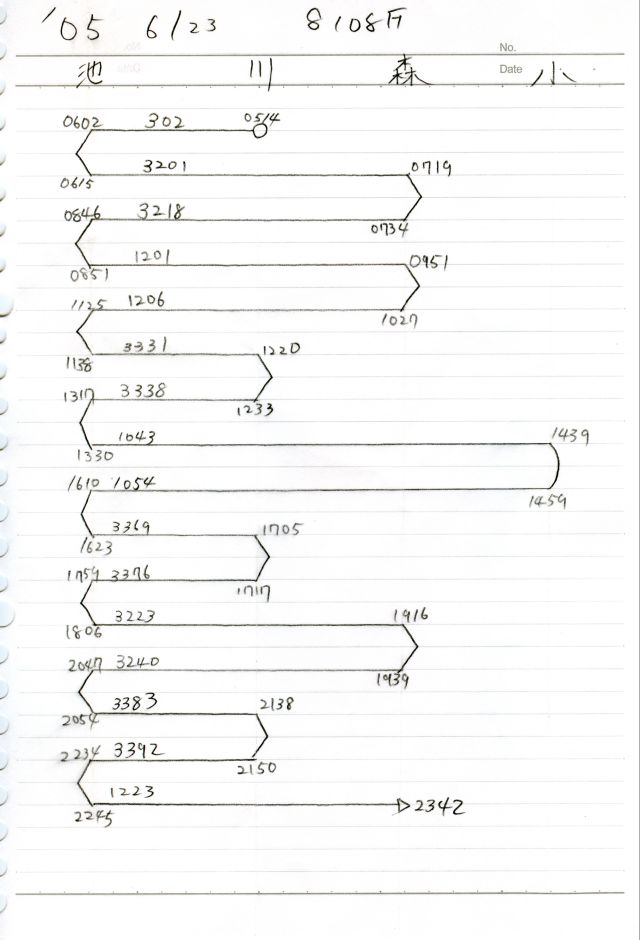 '05 6/23 8108F
No.
Date
池 川 森 小
0602 302 0514
0615 3201 0719
0846 3218 0734
0851 1201 0951
1125 1206 1027
1138 3331 1220
1317 3338 1233
1330 1043 1439
1610 1054 1459
1623 3369 1705
1759 3376 1717
1806 3223 1916
2047 3240 1939
2054 3383 2138
2234 3392 2150
2245 1223 2342